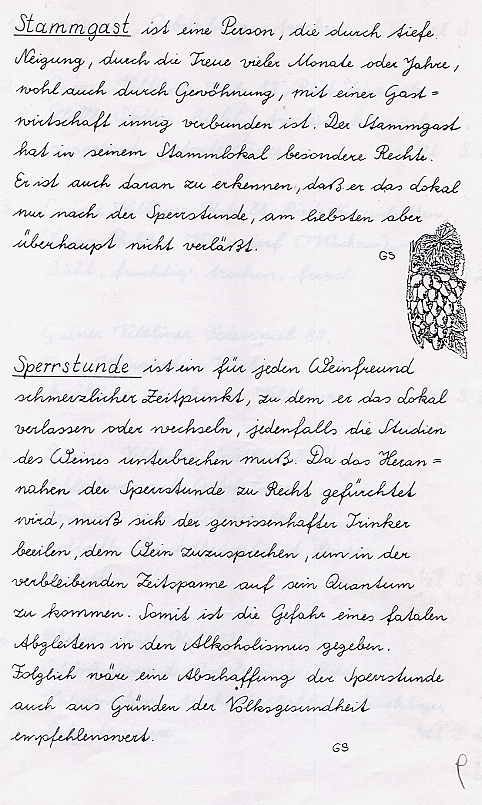 Stammgast ist eine Person, die durch tiefe
Neigung, durch die Treue vieler Monate oder Jahre,
wohl auch durch Gewöhnung, mit einer Gast=
wirtschaft innig verbunden ist. Der Stammgast
hat in seinem Stammlokal besondere Rechte.
Er ist auch daran zu erkennen, daß er das Lokal
nur nach der Sperrstunde, am liebsten aber
überhaupt nicht verläßt.
GS
Sperrstunde ist ein für jeden Weinfreund
schmerzlicher Zeitpunkt, zu dem er das Lokal
verlassen oder wechseln, jedenfalls die Studien
des Weines unterbrechen muß. Da das Heran=
nahen der Sperrstunde zu Recht gefürchtet
wird, muß sich der gewissenhafter Trinker
beeilen, dem Wein zuzusprechen, um in der
verbleibenden Zeitspanne auf sein Quantum
zu kommen. Somit ist die Gefahr eines fatalen
Abgleitens in den Alkoholismus gegeben.
Folglich wäre eine Abschaffung der Sperrstunde
auch aus Gründen der Volksgesundheit
empfehlenswert.
GS